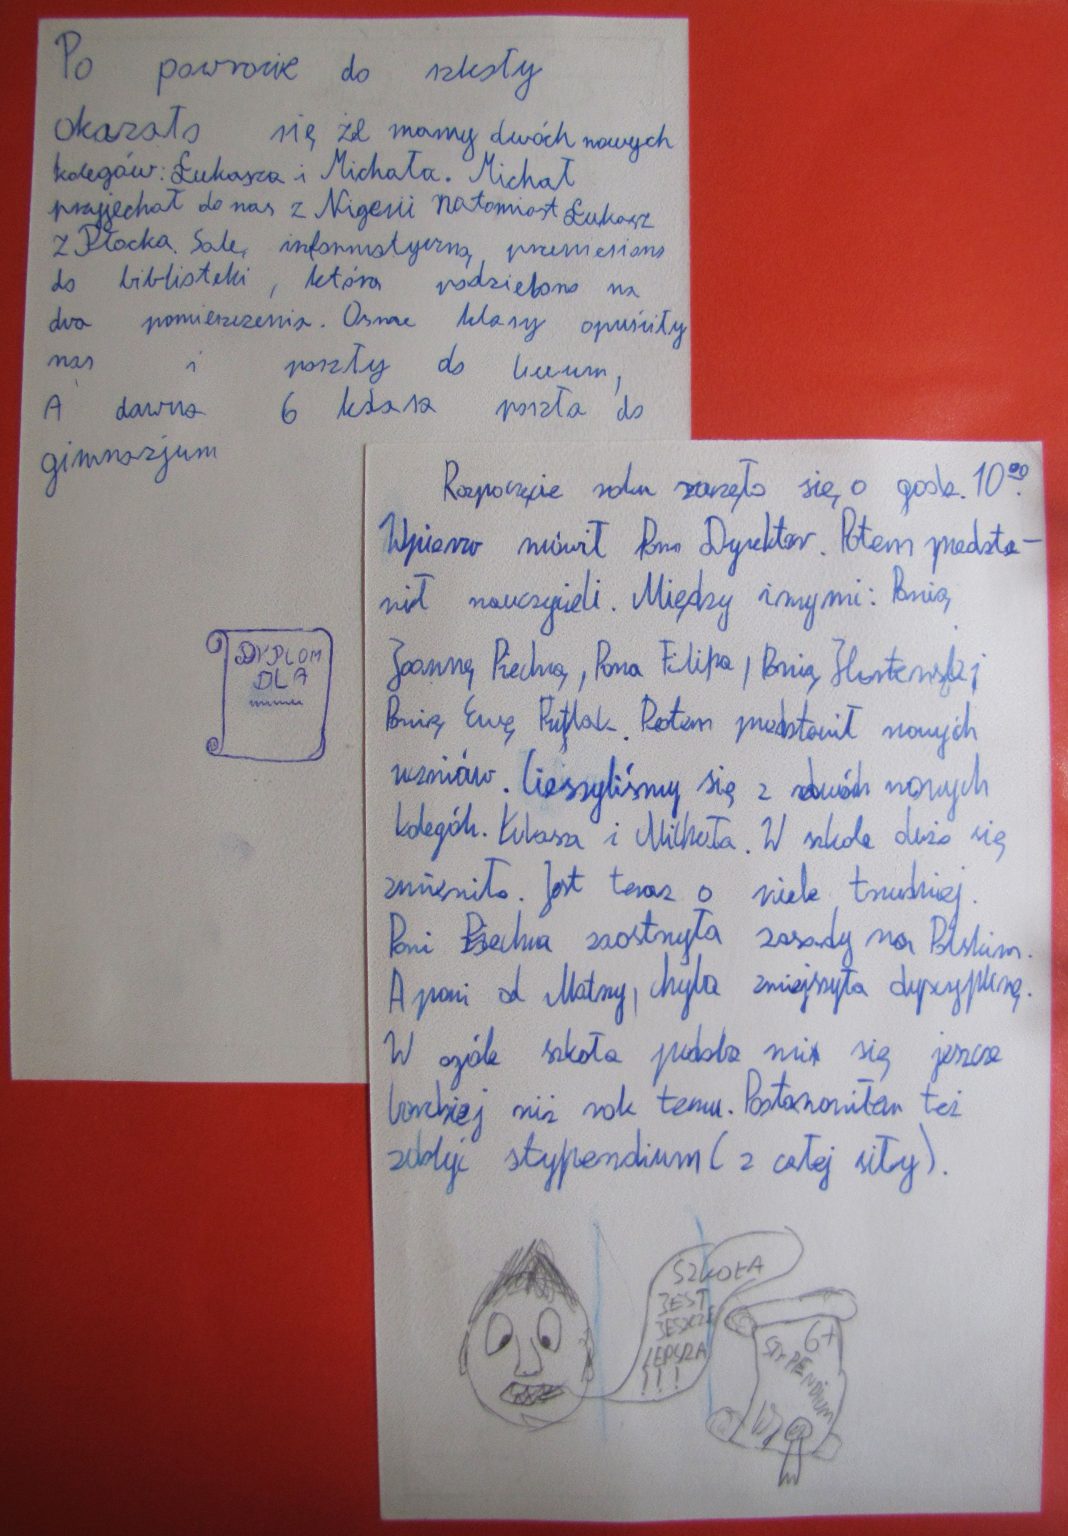 Po powrocie do szkoły
okazało się że mamy dwóch nowych
kolegów: Łukasza i Michała. Michał
przyjechał do nas z Nigerii natomiast Łukasz
z Płocka. Salę informatyczną przeniesiono
do biblioteki, którą podzielono na
dwa pomieszczenia. Ósme klasy opuściły
nas i poszły do liceum,
A dawna 6 klasa poszła do
gimnazjum
DYPLOM
DLA
Rozpoczęcie roku zaczęło się o godz. 10⁰⁰.
Wpierw mówił Pan Dyrektor. Potem przedsta-
wił nauczycieli. Między innymi: Panią
Joannę Piechną, Pana Filipa, Panią
Panią Ewę. Potem przedstawił nowych
uczniów. Cieszyliśmy się z dwóch nowych
kolegów. Łukasza i Michała. W szkole dużo się
zmieniło. Jest teraz o wiele trudniej.
Pani Piechna zaostrzyła zasady na Polskim.
A pani od Matmy, chyba zmiejszyła dyscyplinę.
W ogóle szkoła podoba mi się jeszcze
bardziej niż rok temu. Postanowiłem też
zdobyć stypendium (z całej siły).
SZKOŁA
JEST
JESZCZE
LEPSZA
!!!
6+
STYPENDIUM